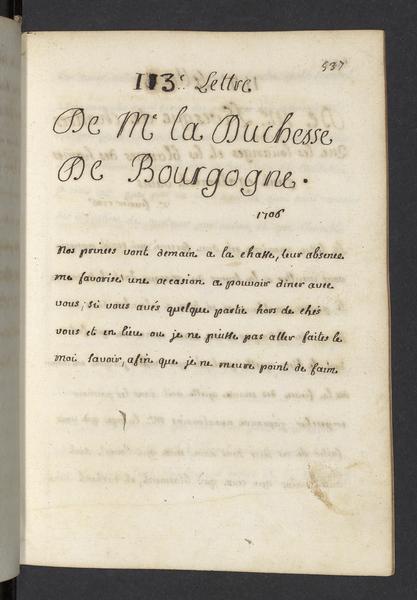 537
113e Lettre
De Me la Duchesse
De Bourgogne.
1706
Nos princes vont demain a la chasse, leur absence
me favorise une occasion a pouvoir diner avec
vous, si vous avés quelque partie hors de chés
vous et en lieu ou je ne puisse pas aller faites le
moi savoir, afin que je ne meure point de faim